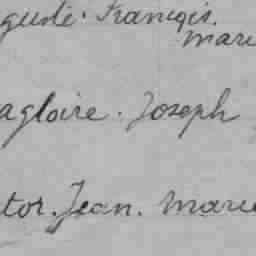 guste. François.
mari
agloire. Joseph
tor. Jean. Marie